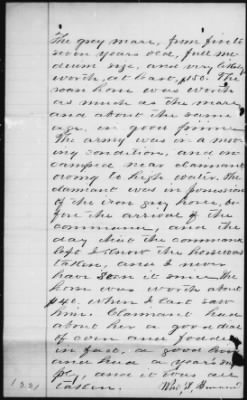 The grey mare, from five to
seven years old, full me
dium size, and very likely
worth, at least, $150. The
roan horse was worth
as much as the mare
and about the same
age, in good
The army was in a mov
ing condition, and en
camped near claimant
owing to high water. The
claimant was in possession
of the iron grey horse, be
fore the arrival of the
command, and the
day that the command
left I the horse was
taken, and I never
have seen it since. The
horse was worth about
$140, when I last saw
him. Claimant had
about her a good deal
of corn and fodder
in fact, a good
and had a year's sup
ply, and it was all
taken.